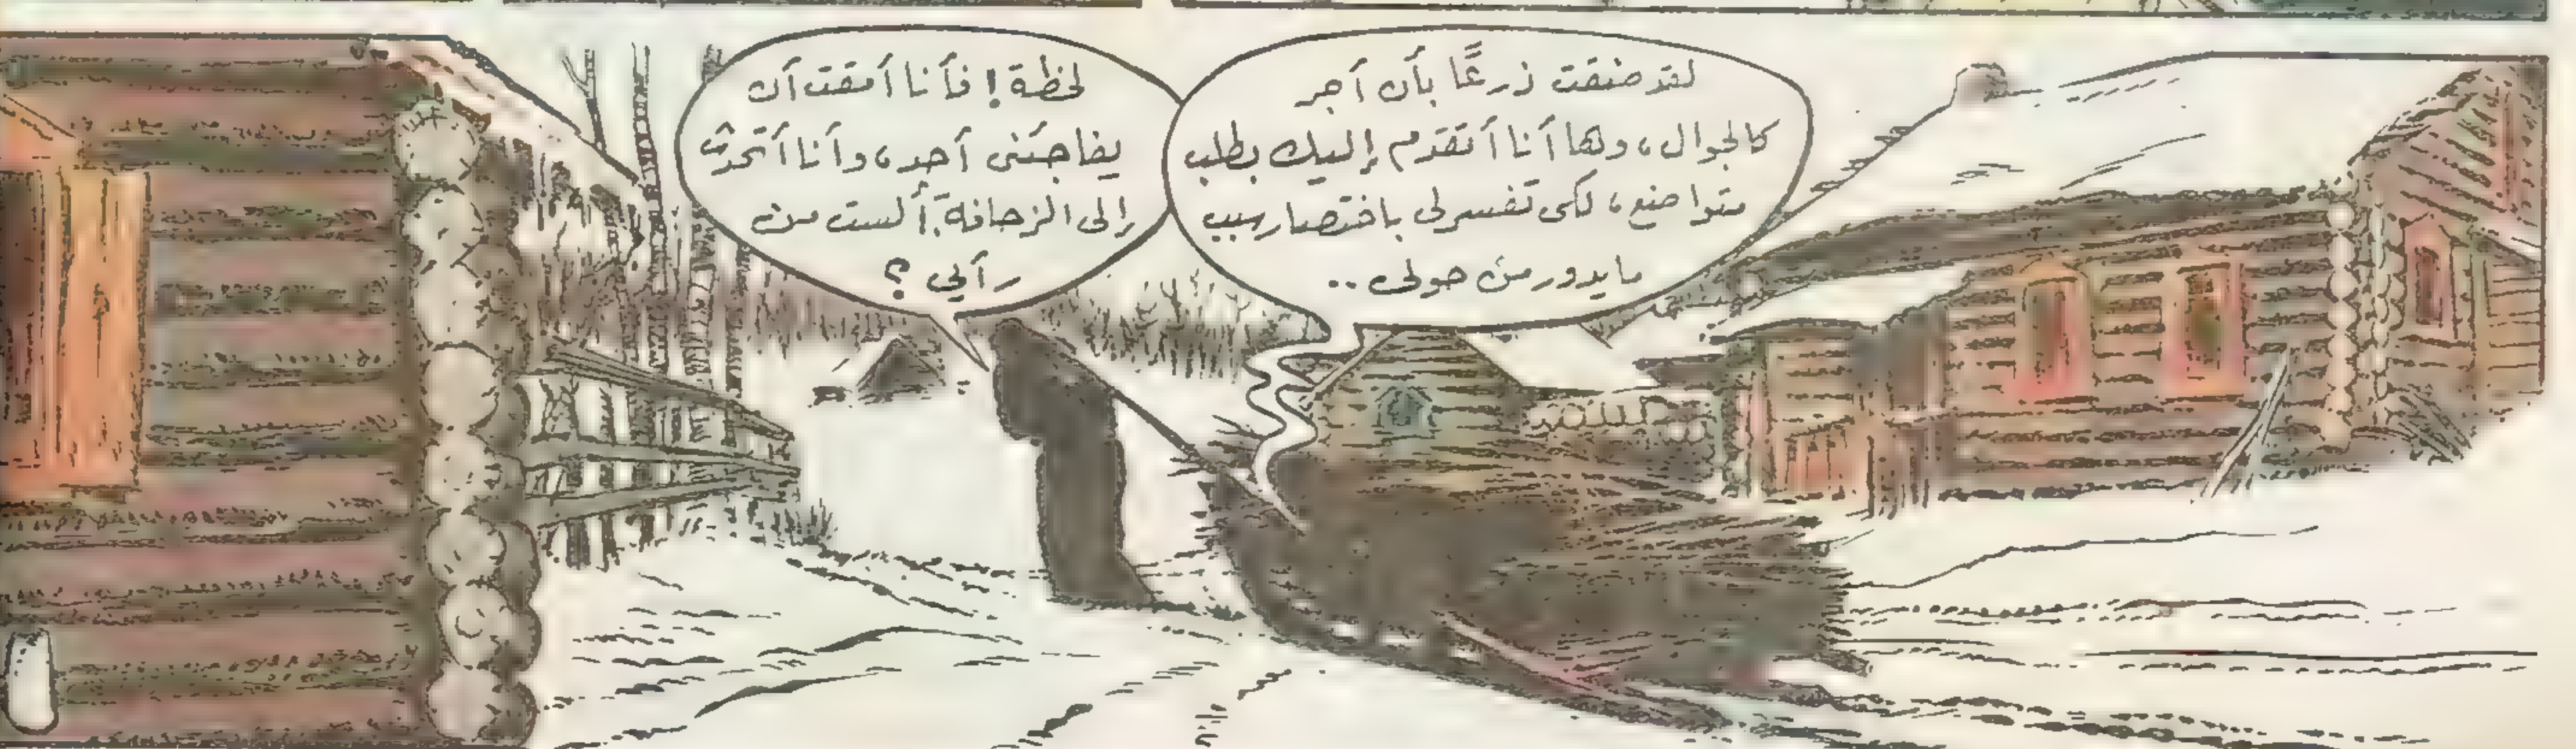 لقد ضقت ذرعًا بأن أجر
كالجوال، وها أنا أتقدم إليك بطلب
متواضع، لكى تفسر لى باختصار سبب
ما يدور من حولى..
لحظة! فأنا أمقت أن
يفاجئنى أحد، وأنا أتحدث
إلى الزحافة. ألست من
رأيي؟